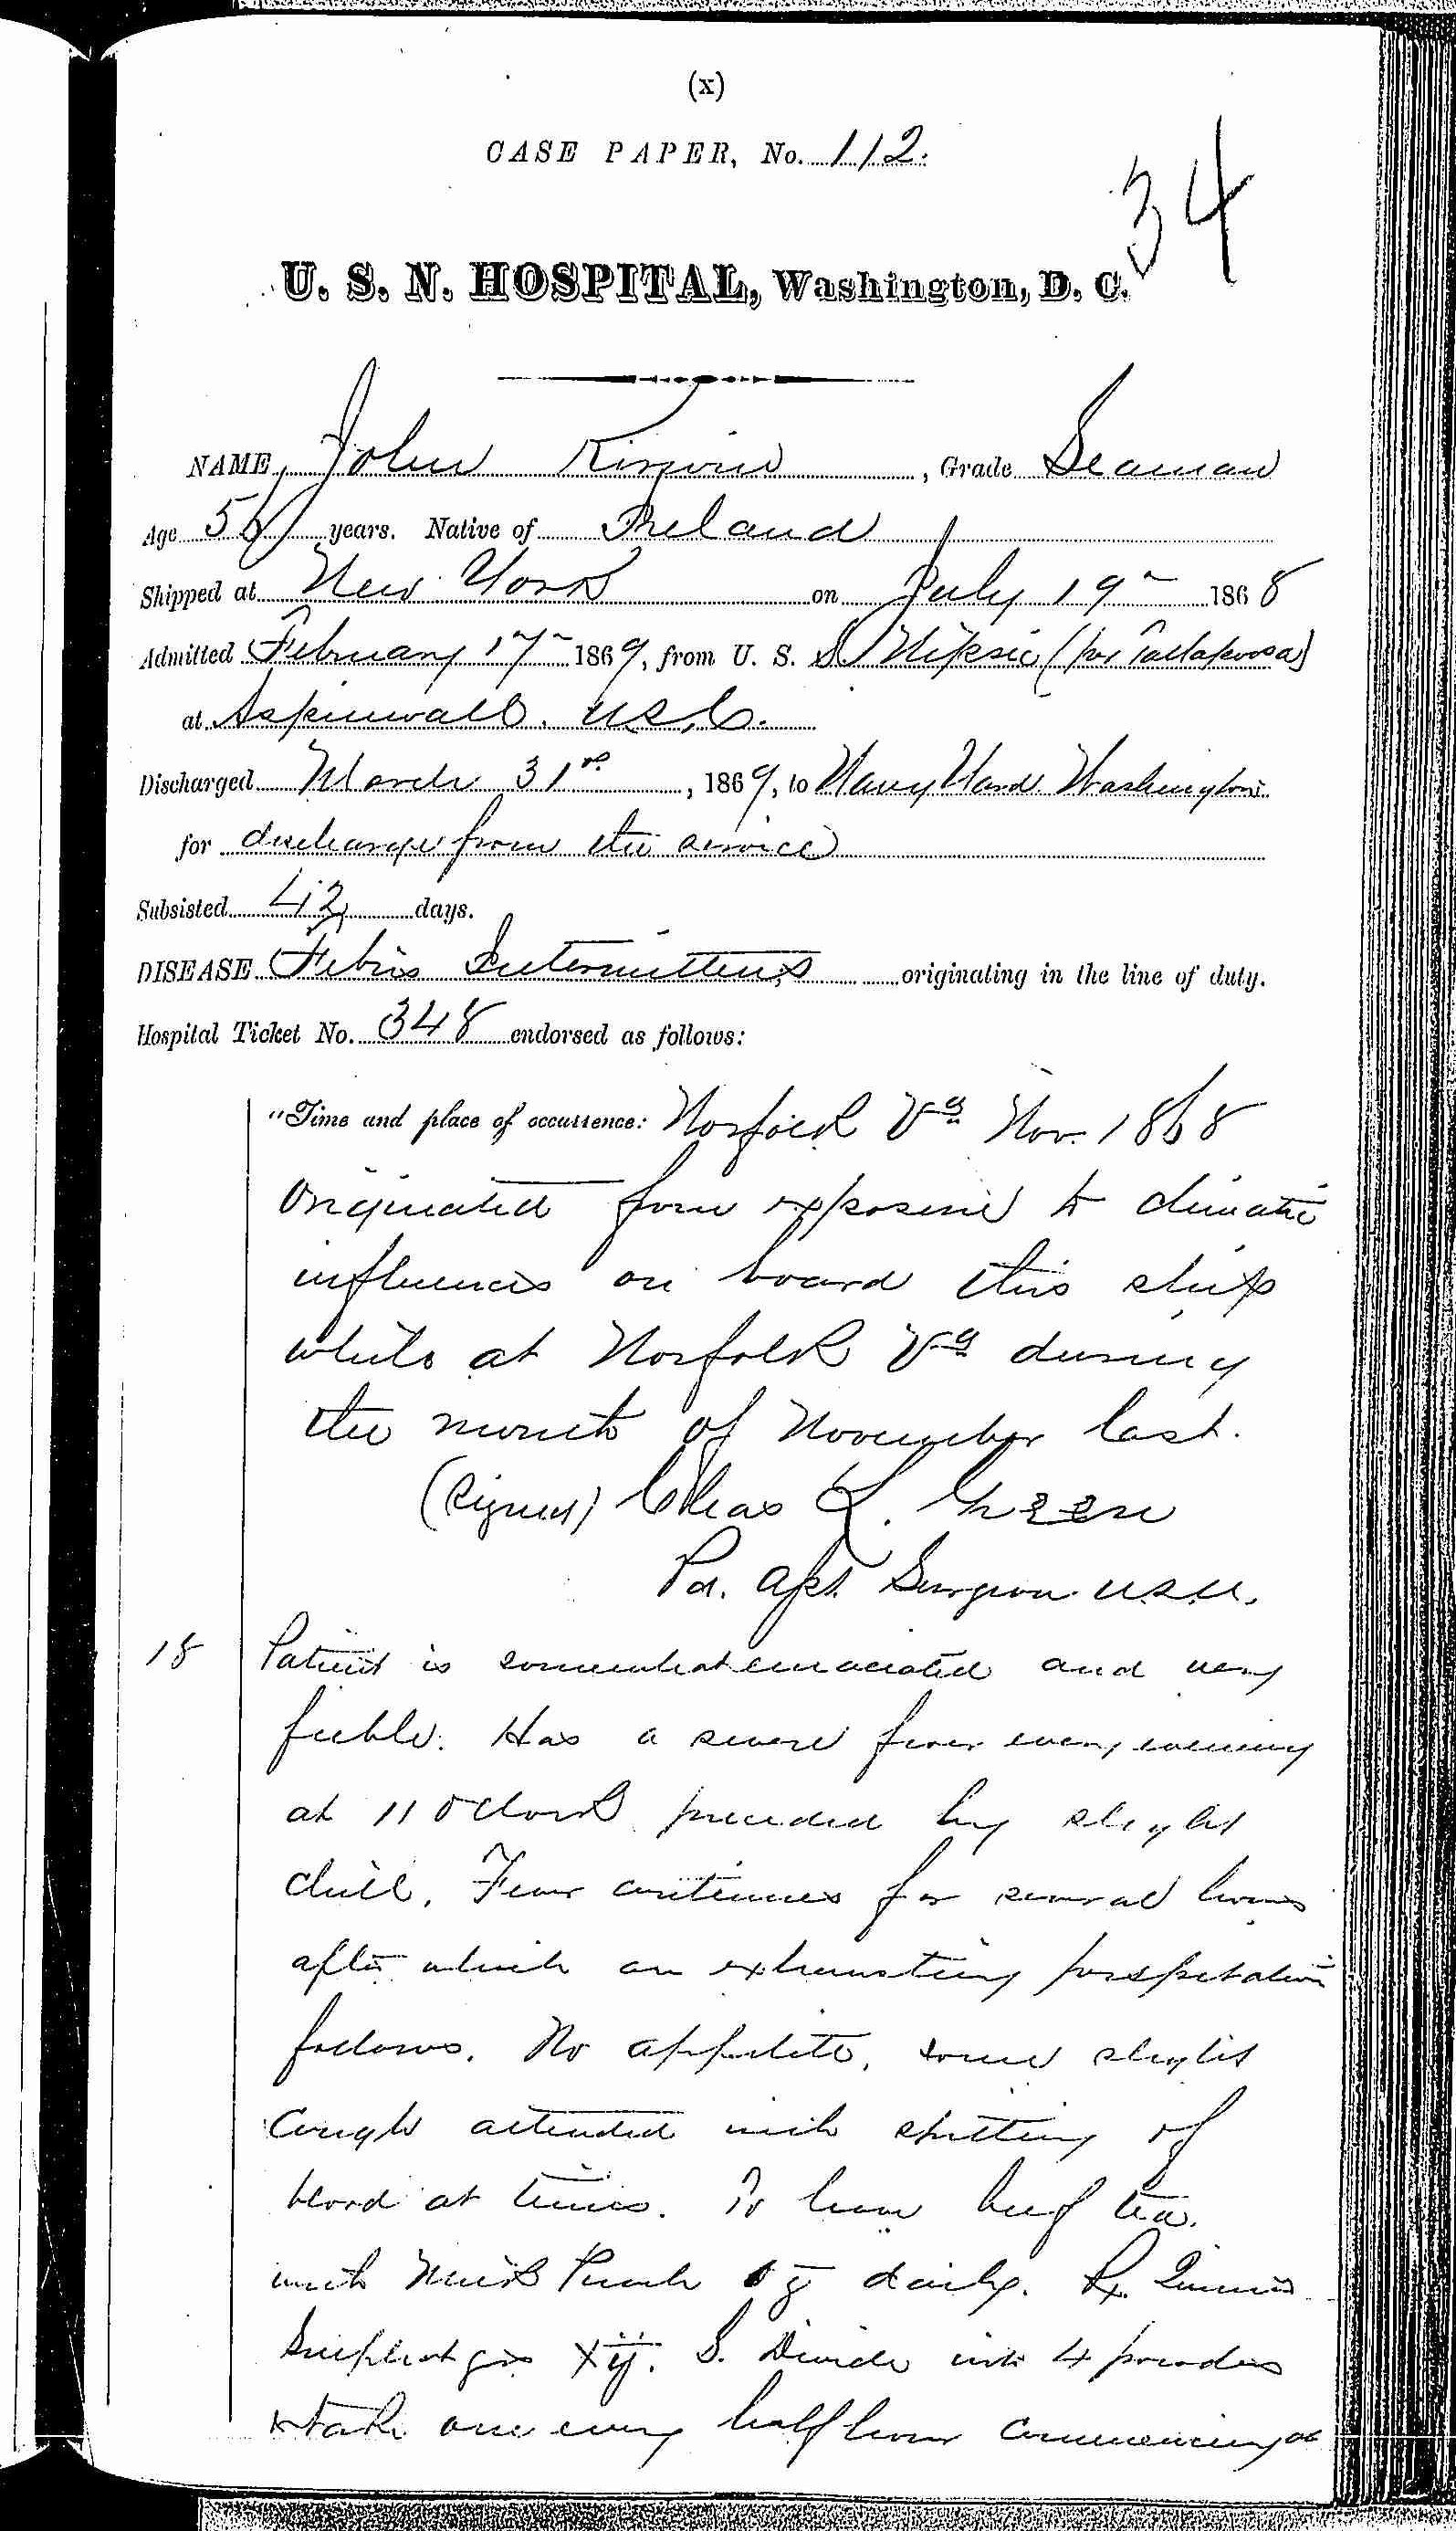 (x)
CASE PAPER, No. 112.
34
U. S. N. HOSPITAL, Washington, D. C.
NAME, John Kirwin, Grade Seaman
Age 56 years. Native of Ireland
Shipped at New York on July 19" 1868
Admitted February 17" 1869, from U. S. S. Nipsic (per Tallapoosa)
at Aspinwall. U.S.C.
Discharged March 31st, 1869, to Navy Yard Washington
for discharge from the service
Subsisted 42 days.
DISEASE Febris Intermittens originating in the line of duty.
Hospital Ticket No. 348 endorsed as follows:
"Time and place of occurrence: Norfolk Va Nov. 1868
Originated from exposure to climatic
influences on board this ship
while at Norfolk Va during
the month of November last.
(Signed) Chas L. Green
Pd. Asst. Surgeon U.S.N.
18 Patient is somewhat emaciated and very
feeble. Has a severe fever every evening
at 11 O'clock preceded by slight
chill. Fever continues for several hours
after which an exhausting perspiration
follows. No appetite, some slight
Cough attended with spitting of
blood at times. To have beef tea.
with Milk Punch daily. Rx. Quinia
Sulphat grs xij. S. Divide into 4 powders
& take one every half hour Commencing at